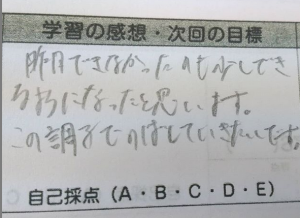 学習の感想・次回の目標
昨日できなかったのも少しでき
るようになったと思います。
この調子でのばしていきたいです。
自己採点（A・B・C・D・E）